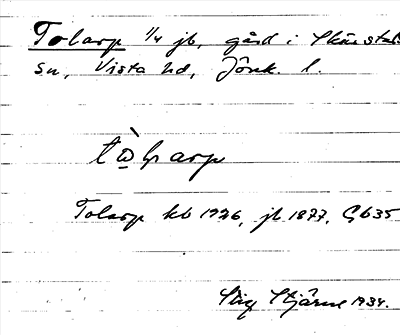 Tolarp 1/4 jb, gård i Skärstads
sn, Vista hd, Jönk. l.
Tolarp kb 1926, jb 1877, Gb 35
Stig Stjärne 1934.